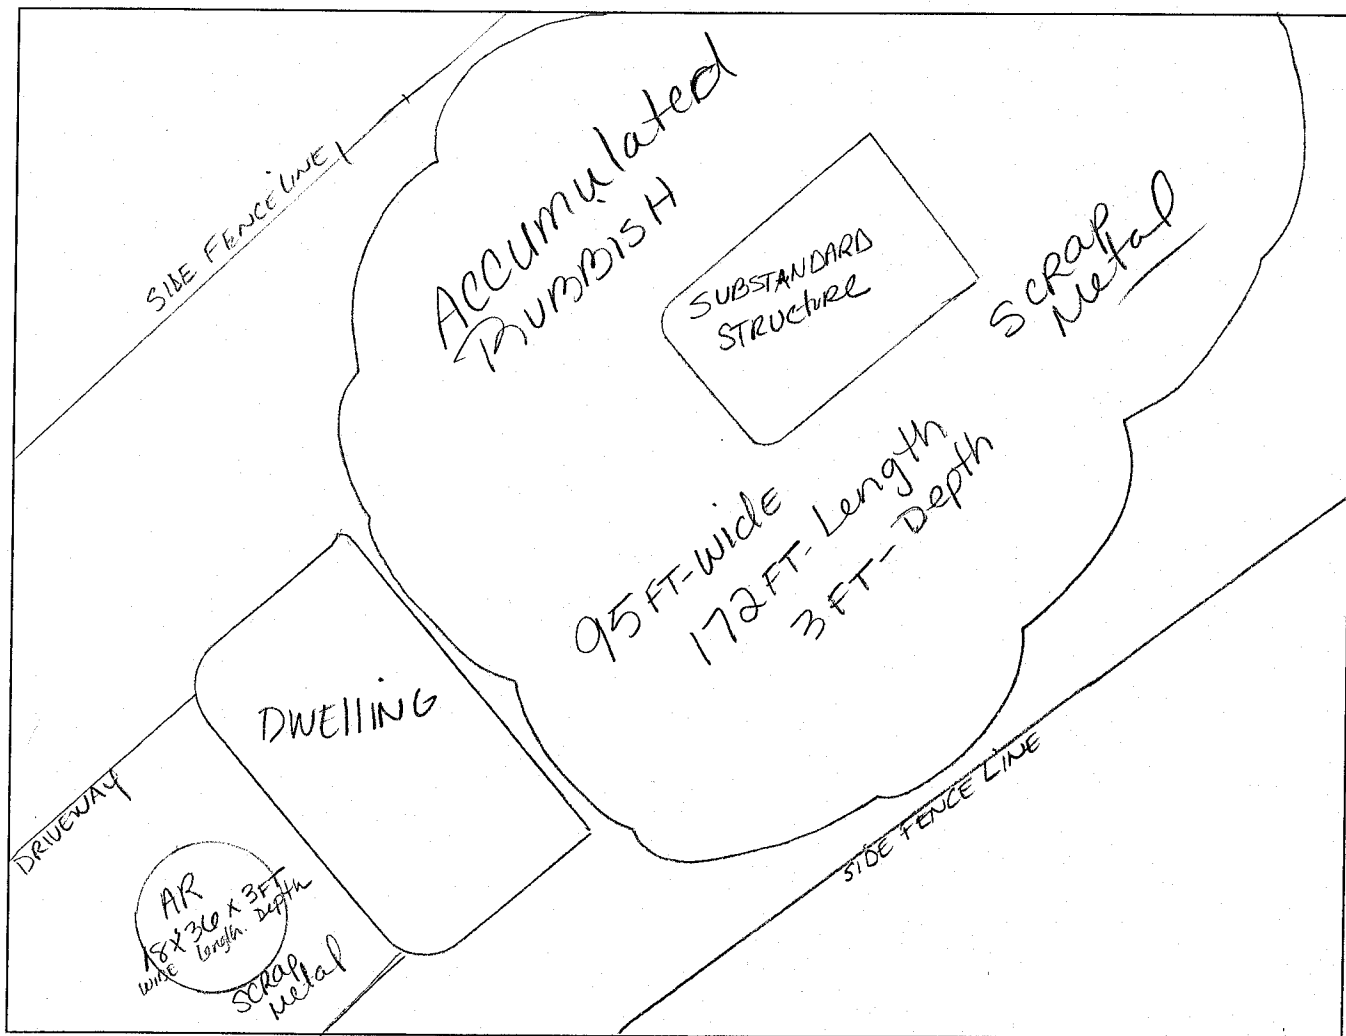 SIDE FENCE LINE
ACCUMUlated
RUBBISH
SUBSTANDARD
STRUCTURE
SCRAP
Metal
95 FT-Wide
172 FT- Length
3 FT- Depth
DWEllING
DRIVEWAY
AR
18 X 36 X 3 FT
WIDE length. Depth
SCRAP
Metal
SIDE FENCE LINE